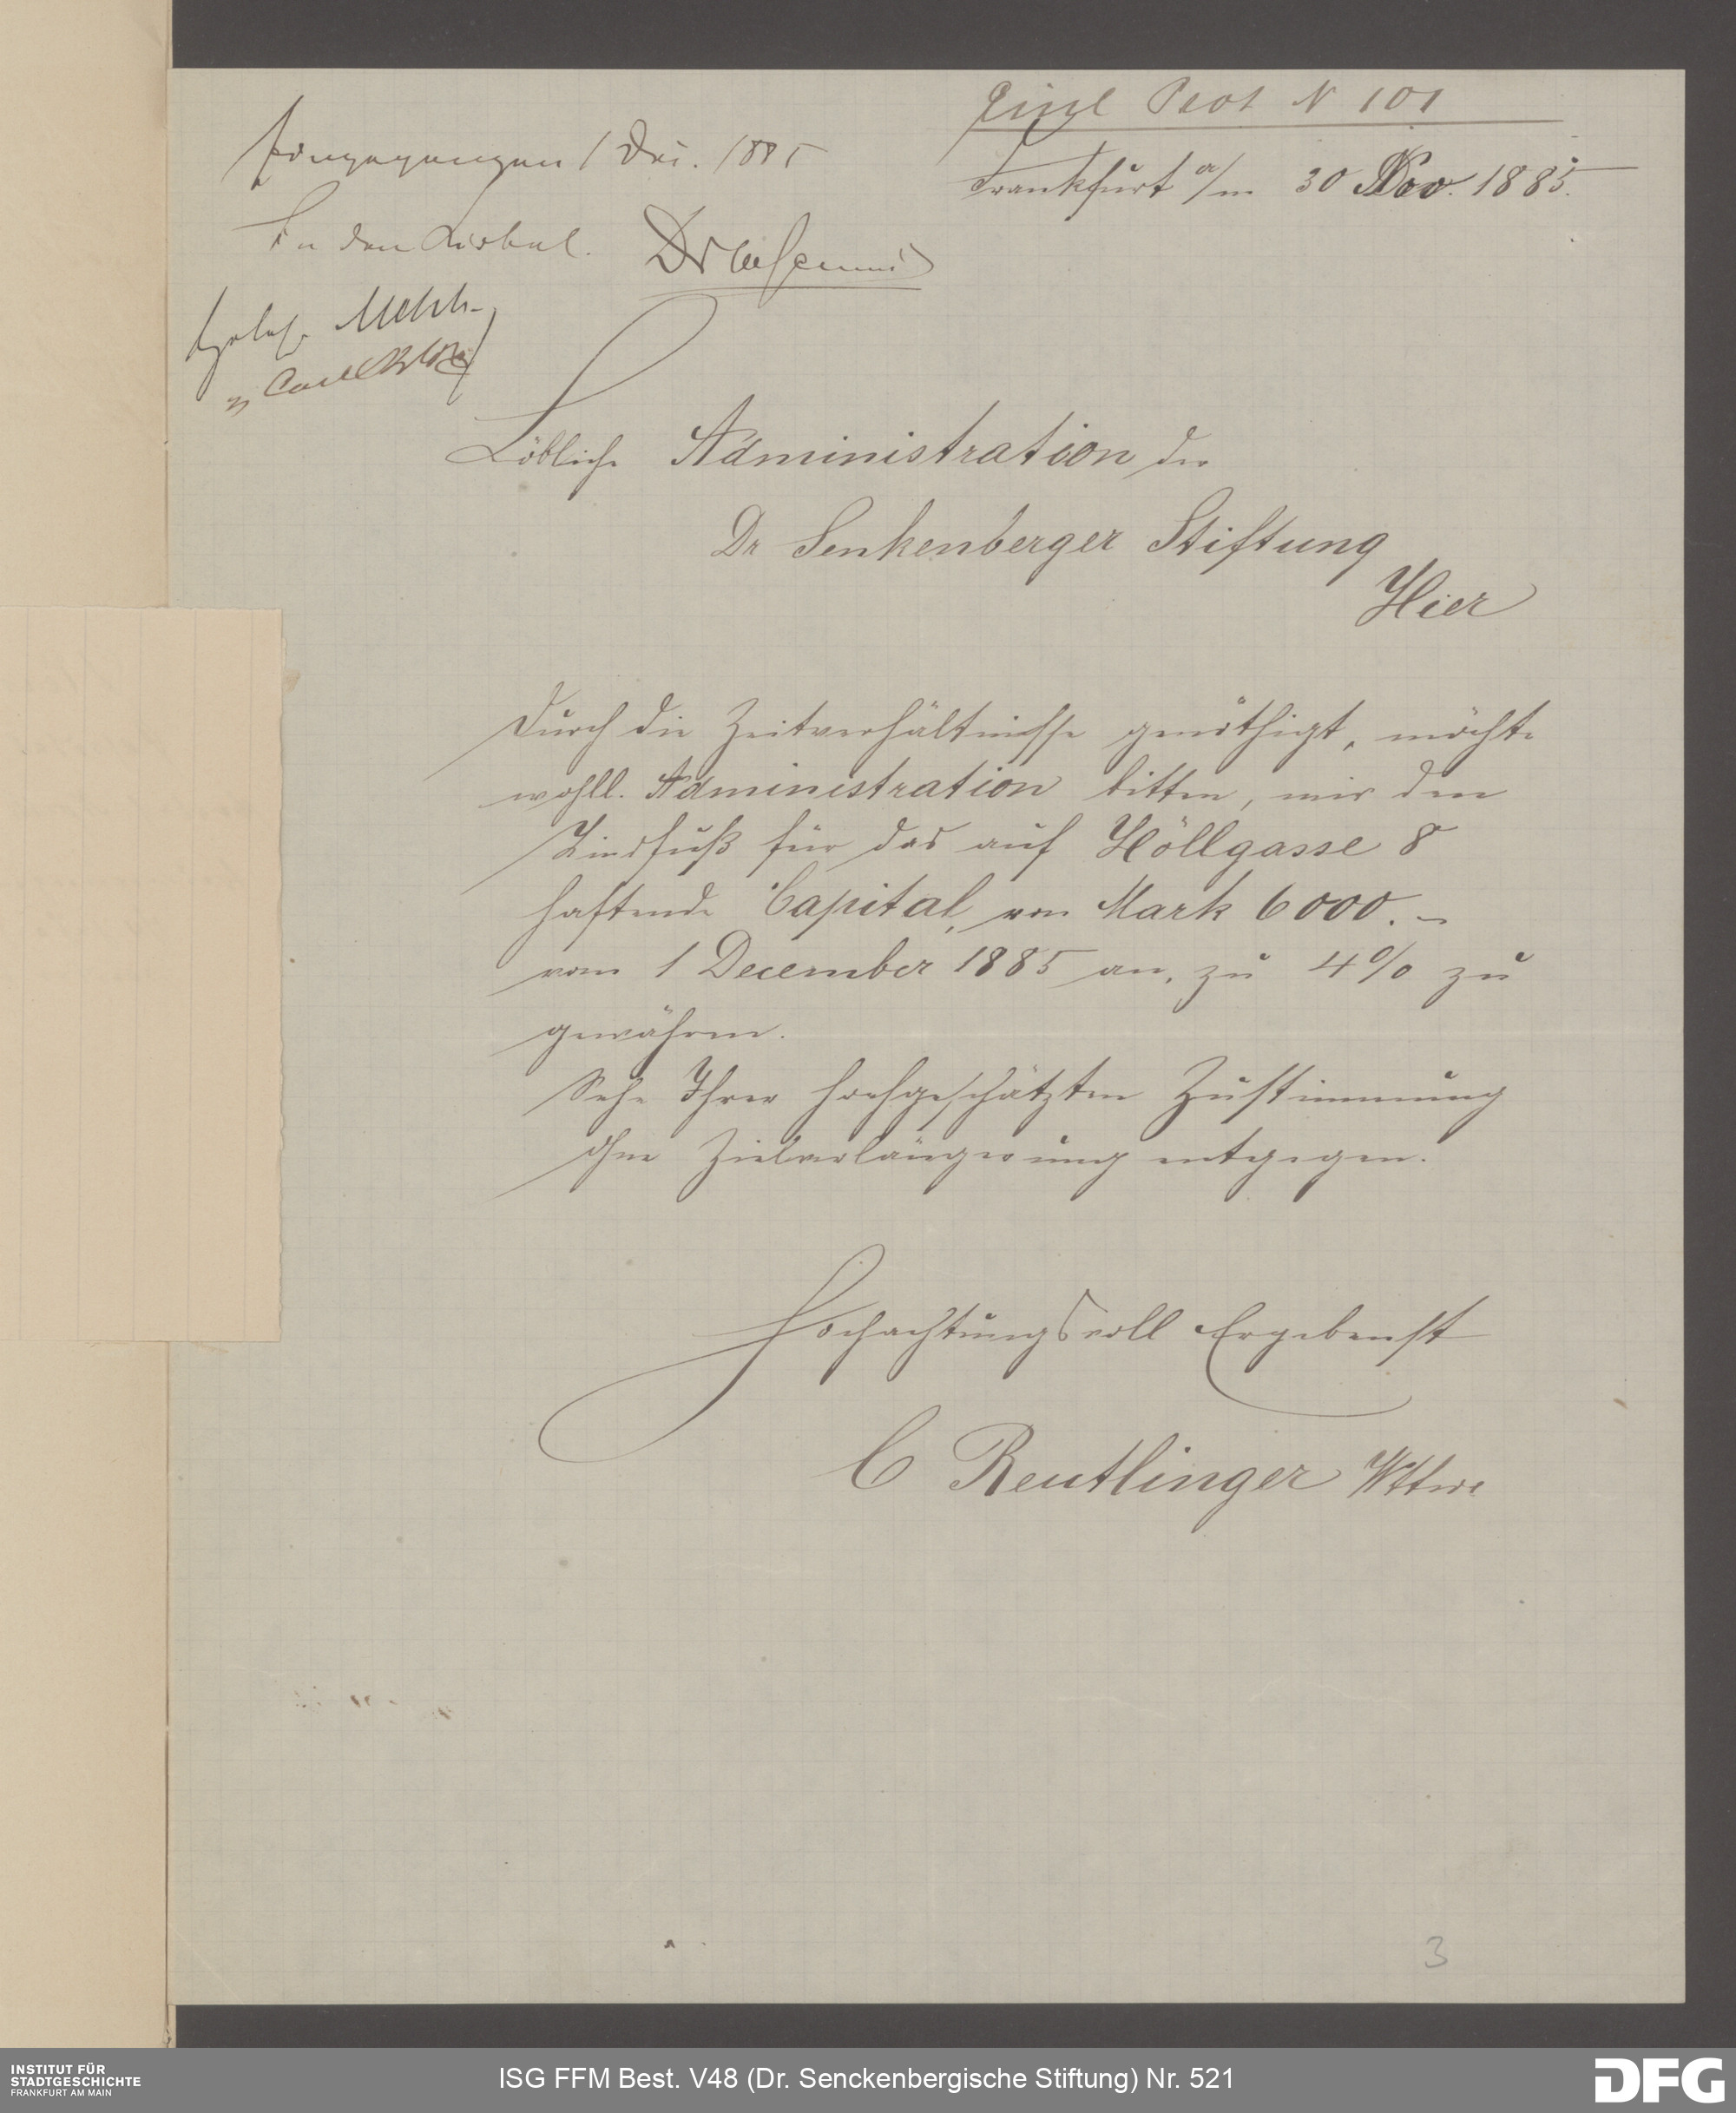 Eingl Prot N 101
Eingegangen 1 Dez. 1885
Frankfurt a/m 30 Nov. 1885.
In den Cirkul.
Dr
gelesen
" Carl
Löbliche Administration der
Dr Senkenberger Stiftung
Hier
Durch die Zeitverhältnisse genöthigt, möchte
wohll. Administration bitten, mir den
Zinsfuß für das auf Höllgasse 8
haftende Capital, von Mark 6000.–
vom 1 December 1885 an, zu 4% zu
gewähren.
Sehe Ihrer hochgeschätzten Zustimmung
ohne Zielverlängerung entgegen.
Hochachtungsvoll Ergebenst
C Reutlinger Wttwe
3
INSTITUT FÜR
STADTGESCHICHTE
FRANKFURT AM MAIN
ISG FFM Best. V48 (Dr. Senckenbergische Stiftung) Nr. 521
DFG